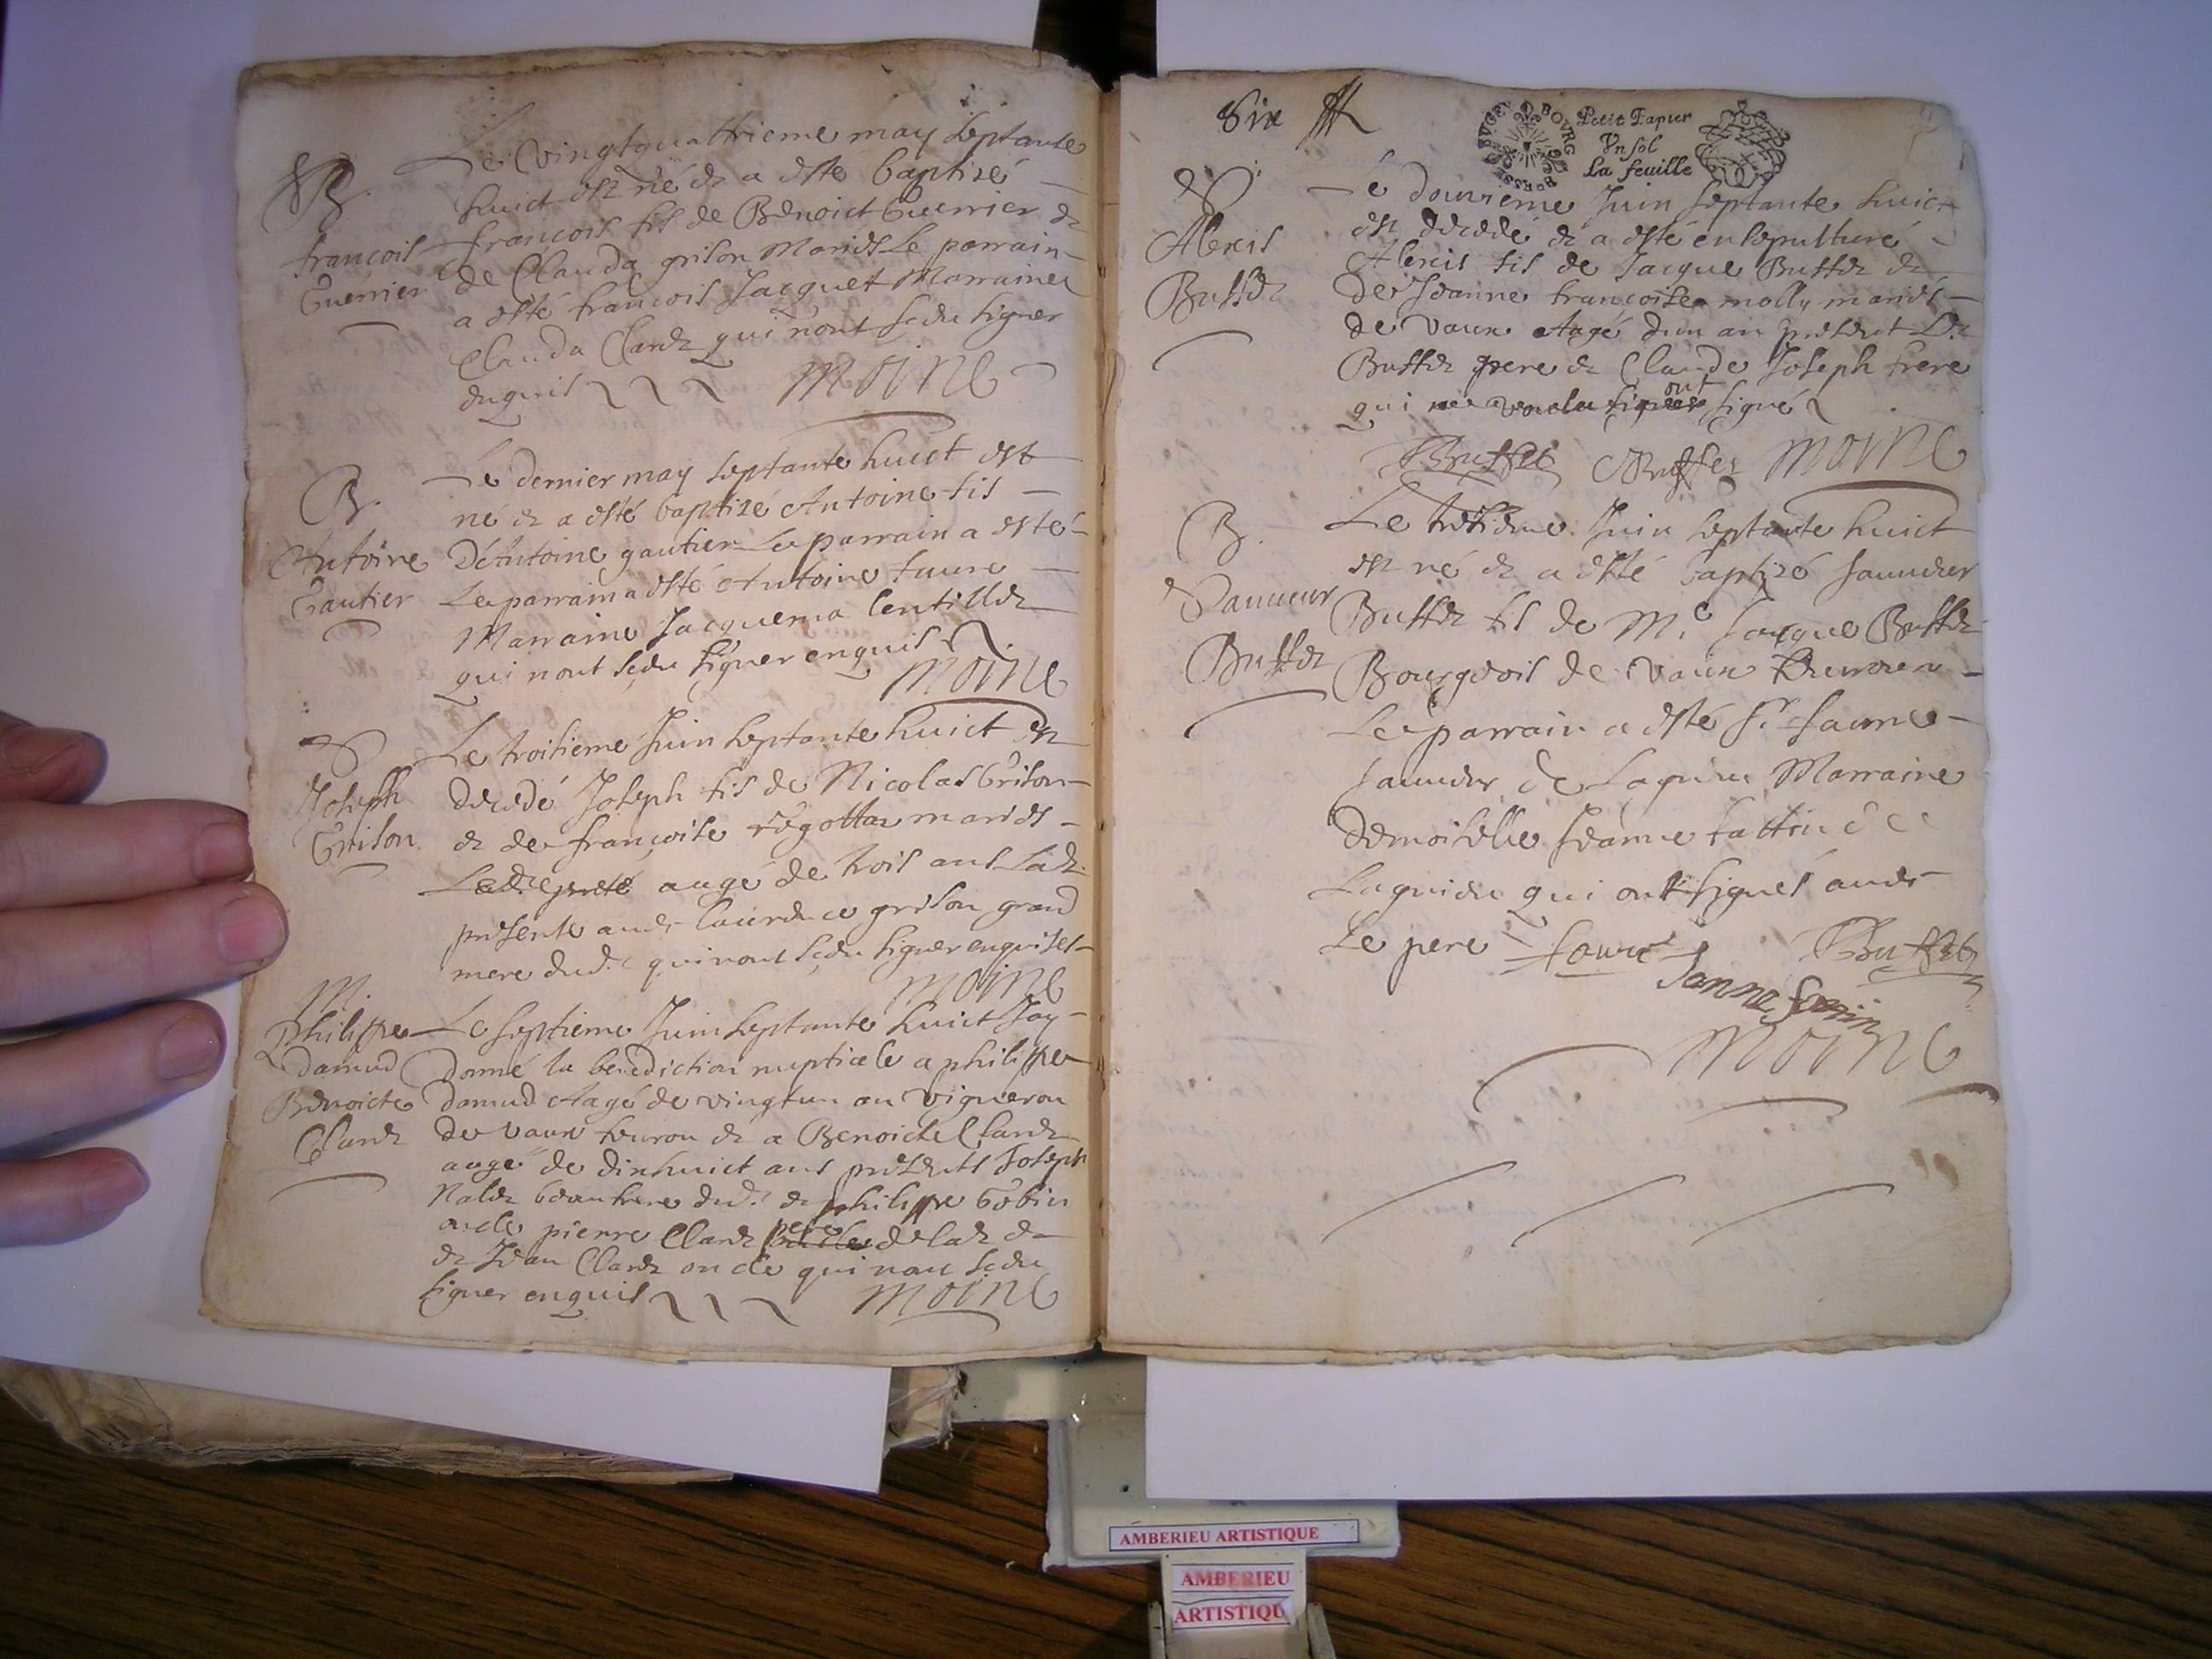 B.
francois
Guerrier
Le vingtquattrieme may septante
huict est né et a esté baptizé
francois fils de Benoict Guerrier et
de Clauda grison Mariés Le parrain
a esté francois Jacquet Marraine
Clauda Claret qui n'ont sceu signer
enquis
Moine
B.
Antoine
Gautier
Le dernier may septante huict est
né et a esté baptizé Antoine fils
D'Antoine gautier Le parrain a esté
Le parrain a esté Antoine faure
Marraine Jacquema
qui nont sceu signer enquis
Moine
Joseph
Grison
Le troisieme Juin septante huict est
decedé Joseph fils de Nicolas Grison
et de francoise mariés
aagé de trois ans Lad.
presente avec grison grand
mere dud. qui nont sceu signer enquises
Moine
M.
Philippe
Damud
Benoicte
Claret
Le septieme Juin septante huict Jay
donné la benediction nuptiale a philippe
damud Aagé de vingtun an vigneron
de vaux fevrou et a Benoicte Claret
aagé de dixhuict ans presents Joseph
beaufrere dud. et philippe Gobin
oncle pierre Claret pere de lad. et
et Jean Claret oncle qui nont sceu
signer enquis
Moine
Six
BOVRG BRESSE BVGEY
Petit Papier
Vn sol
La feuille
Alexis
Buffet
Le douzieme Juin septante huict
est decedé et a esté ensepulturé
Alexis fils de Jacque Buffet et
de Jeanne francoise molly mariés
de vaux Aagé dun an present Led.
Buffet pere et Claude Joseph frere
qui ne voulu signer ont signé
Buffet CBuffet Moine
B.
Sauveur
Buffet
Le treisieme Juin septante huict
est né et a esté baptizé sauveur
Buffet fils de Me. Jacque Buffet
Bourgeois de vaux
Le parrain a esté Sr.
sauveur de Lagnieu Marraine
demoiselle Jeanne
Lagnieu qui ont signés avec
Le pere
Buffet
Janne
Moine
AMBERIEU ARTISTIQUE
AMBERIEU
ARTISTIQU